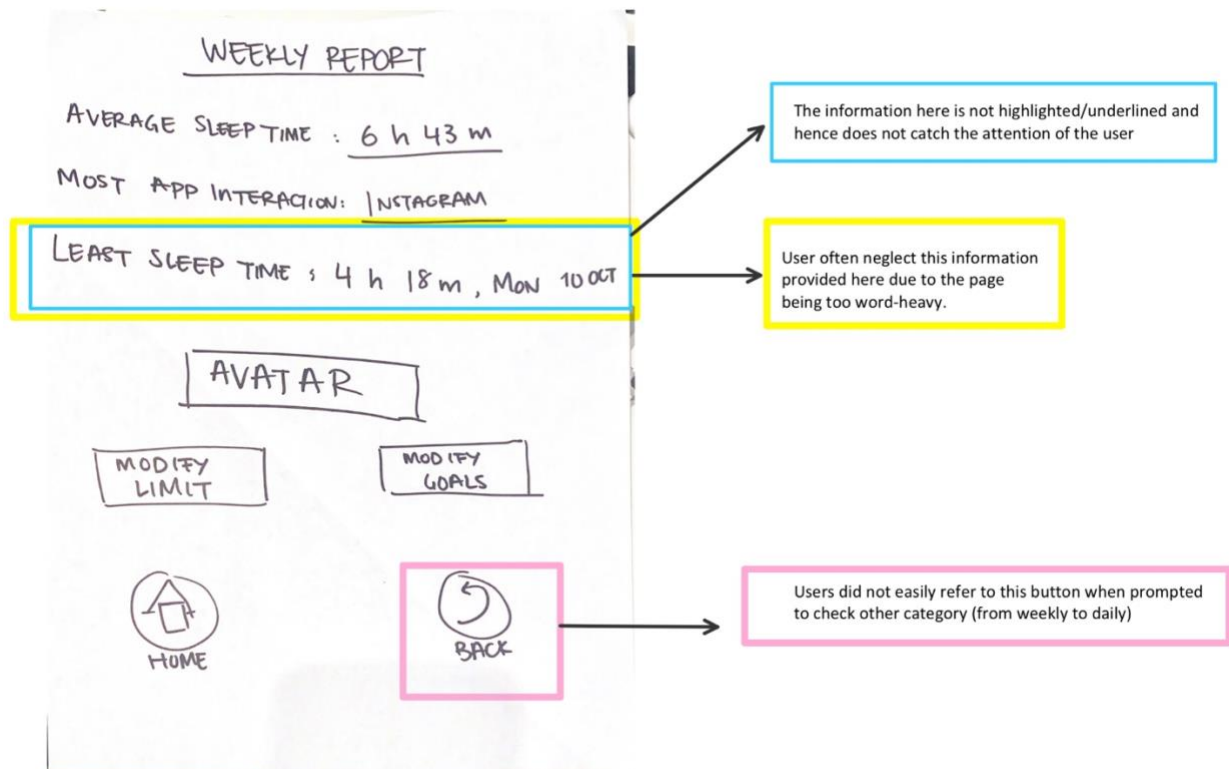 WEEKLY REPORT
AVERAGE SLEEP TIME : 6 h 43 m
MOST APP INTERACTION: INSTAGRAM
LEAST SLEEP TIME : 4 h 18 m, MON 10 OCT
AVATAR
MODIFY
LIMIT
MODIFY
GOALS
HOME
BACK
The information here is not highlighted/underlined and
hence does not catch the attention of the user
User often neglect this information
provided here due to the page
being too word-heavy.
Users did not easily refer to this button when prompted
to check other category (from weekly to daily)